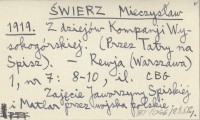 ŚWIERZ Mieczysław
1919. Z dziejów Kompanji Wy-
sokogórskiej. (Przez Tatry na
Spisz). – Rewja (Warszawa)
1, nr 7: 8-10, il. CBG
Zajęcie Jaworzyny Spiskiej
i Matlar przez wojska polskie